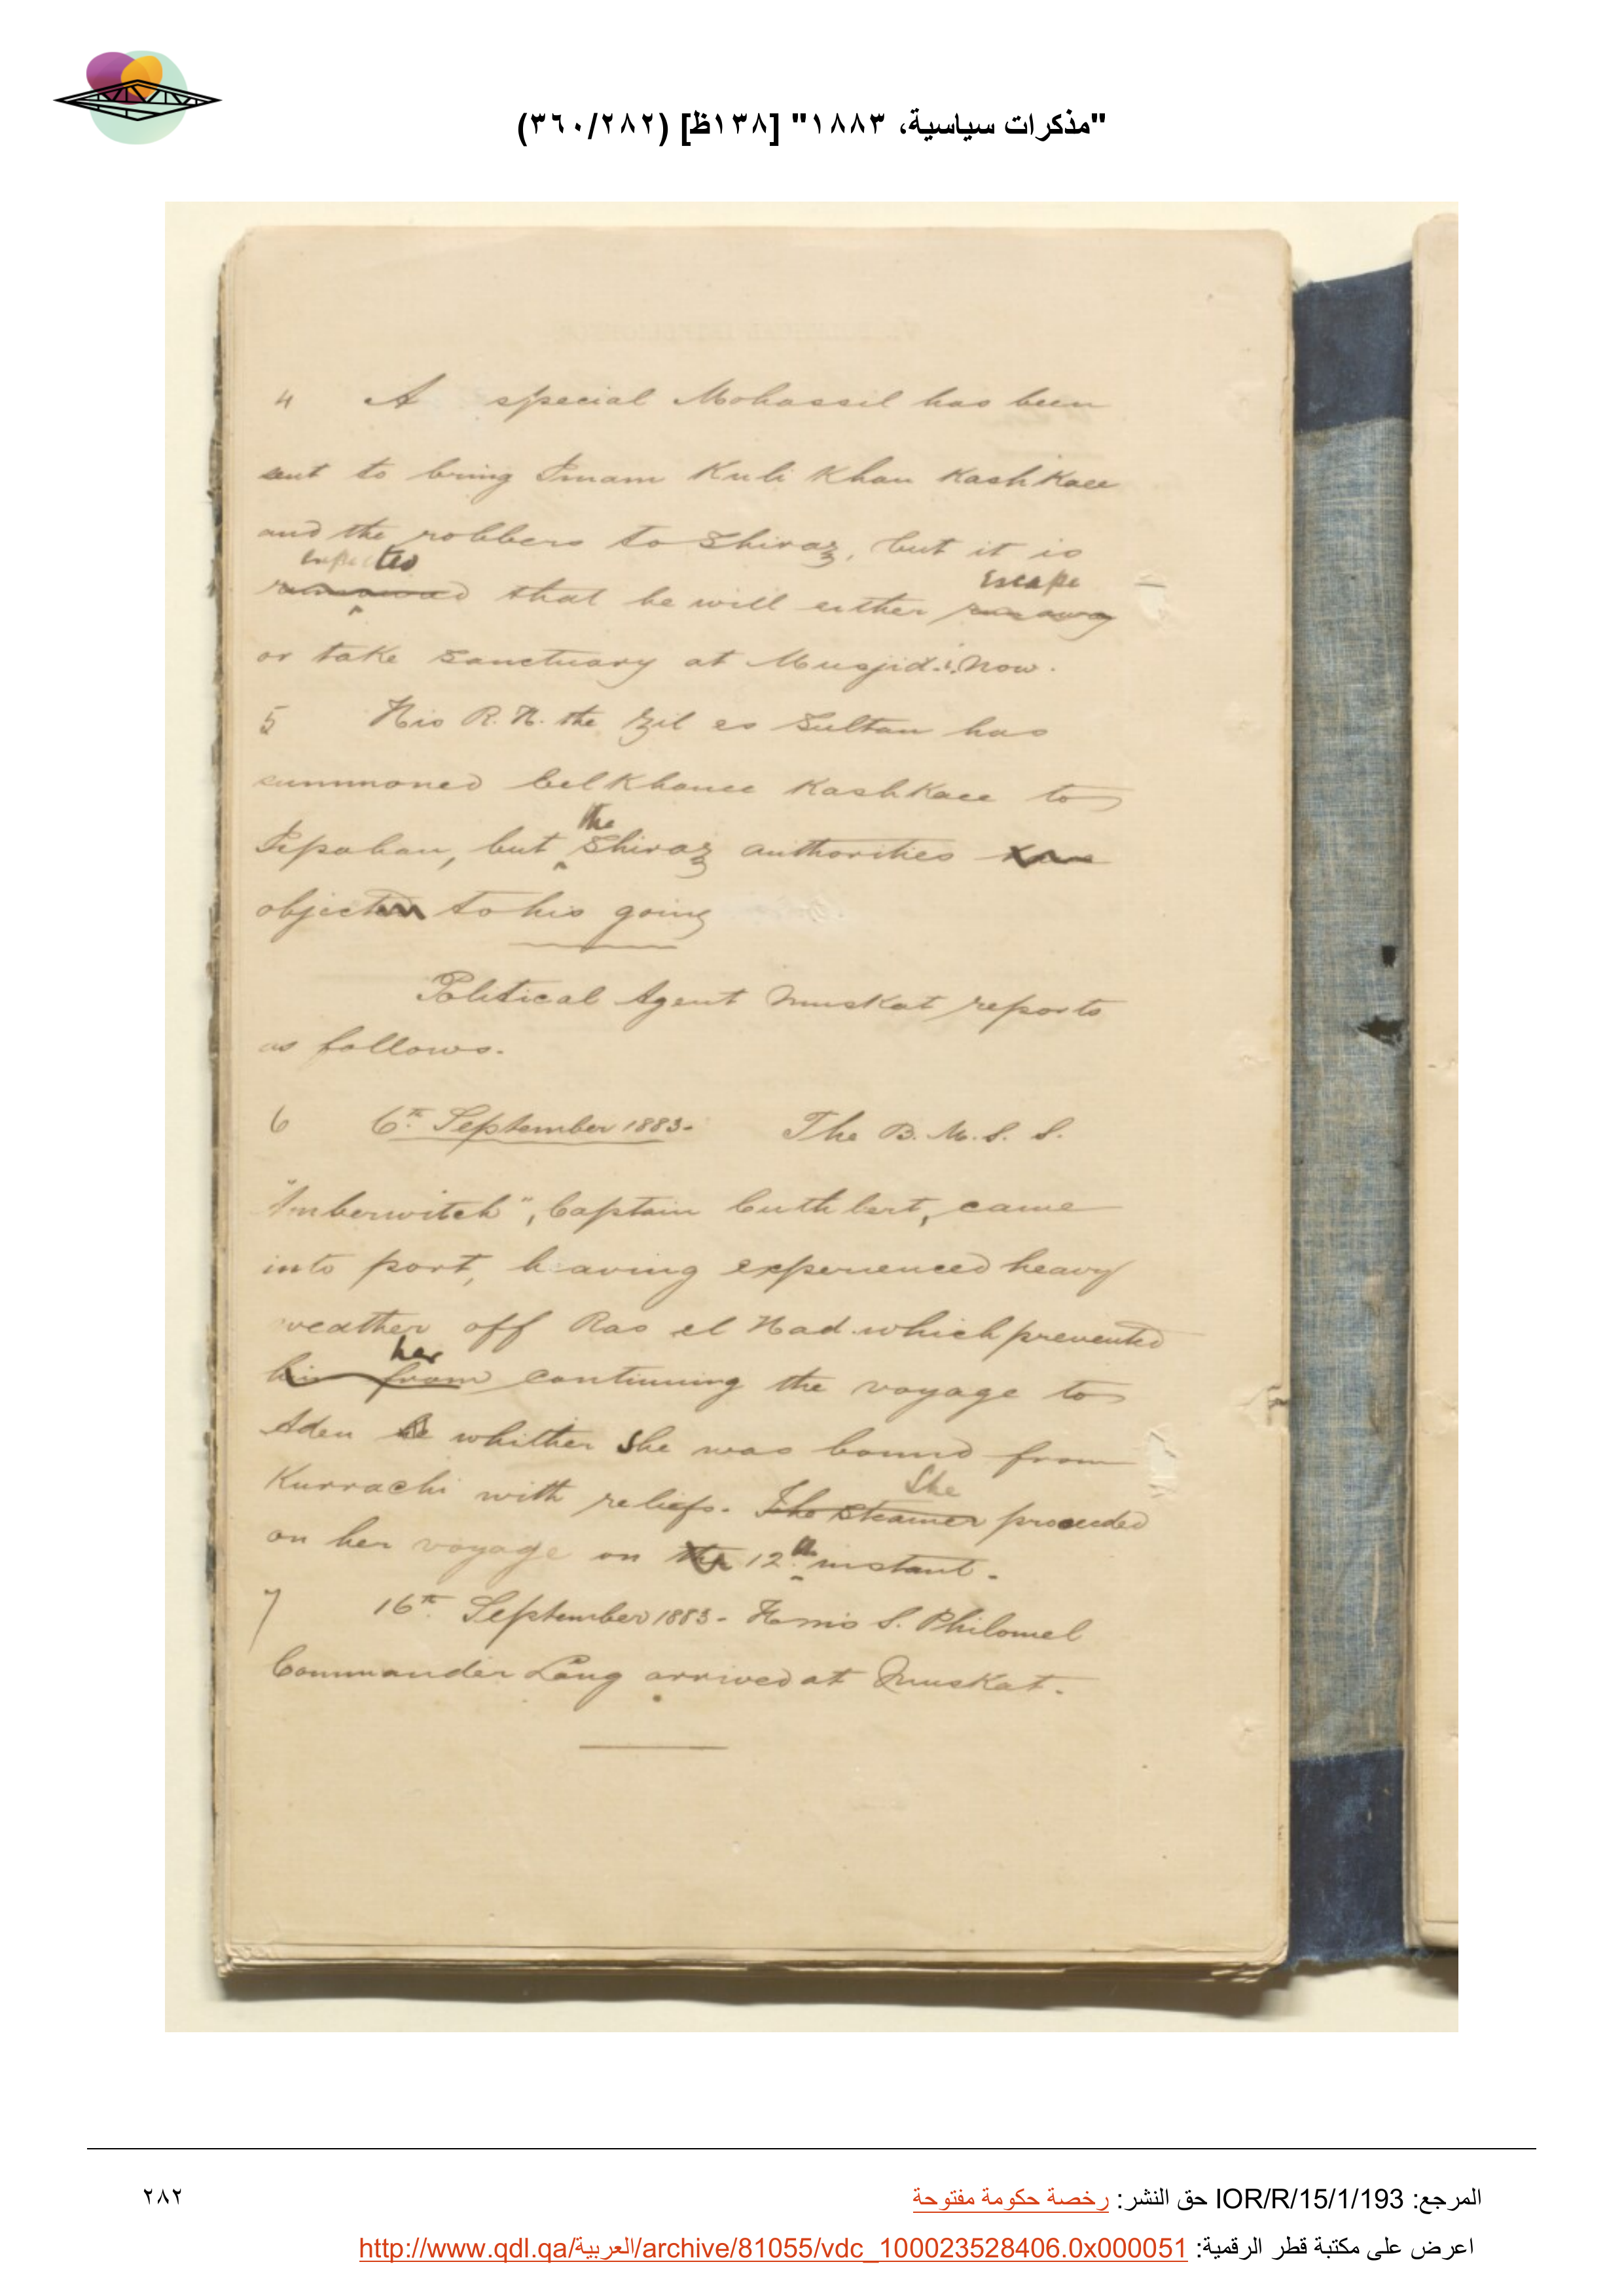 "مذكرات سياسية، ١٨٨٣" [١٣٨ظ] (٣٦٠/٢٨٢)
4 A special Mohassil has been
sent to bring Imam Kuli Khan Kashkaee
and the robbers to Shiraz, but it is
expected
that he will either run away
escape
or take sanctuary at Musjid.i.Now.
5 His R. H. the Zil es Sultan has
summoned Eelkhanee Kashkaee to
the
Ispahan, but Shiraz authorities
object to his going
Political Agent Muskat reports
as follows.
6 6th September 1883- The B. M. S. S.
"Amberwitch", Captain Cuthbert, came
into port, having experienced heavy
weather off Ras el Had which prevented
her
him from continuing the voyage to
Aden whither She was bound from
Kurrachi with reliefs. The Steamer proceeded
She
on her voyage on the 12th instant.
7 16th September 1883- H.M.S. Philomel
Commander Lang arrived at Muskat.
المرجع: IOR/R/15/1/193 حق النشر: رخصة حكومة مفتوحة
٢٨٢
اعرض على مكتبة قطر الرقمية: http://www.qdl.qa/العربية/archive/81055/vdc_100023528406.0x000051